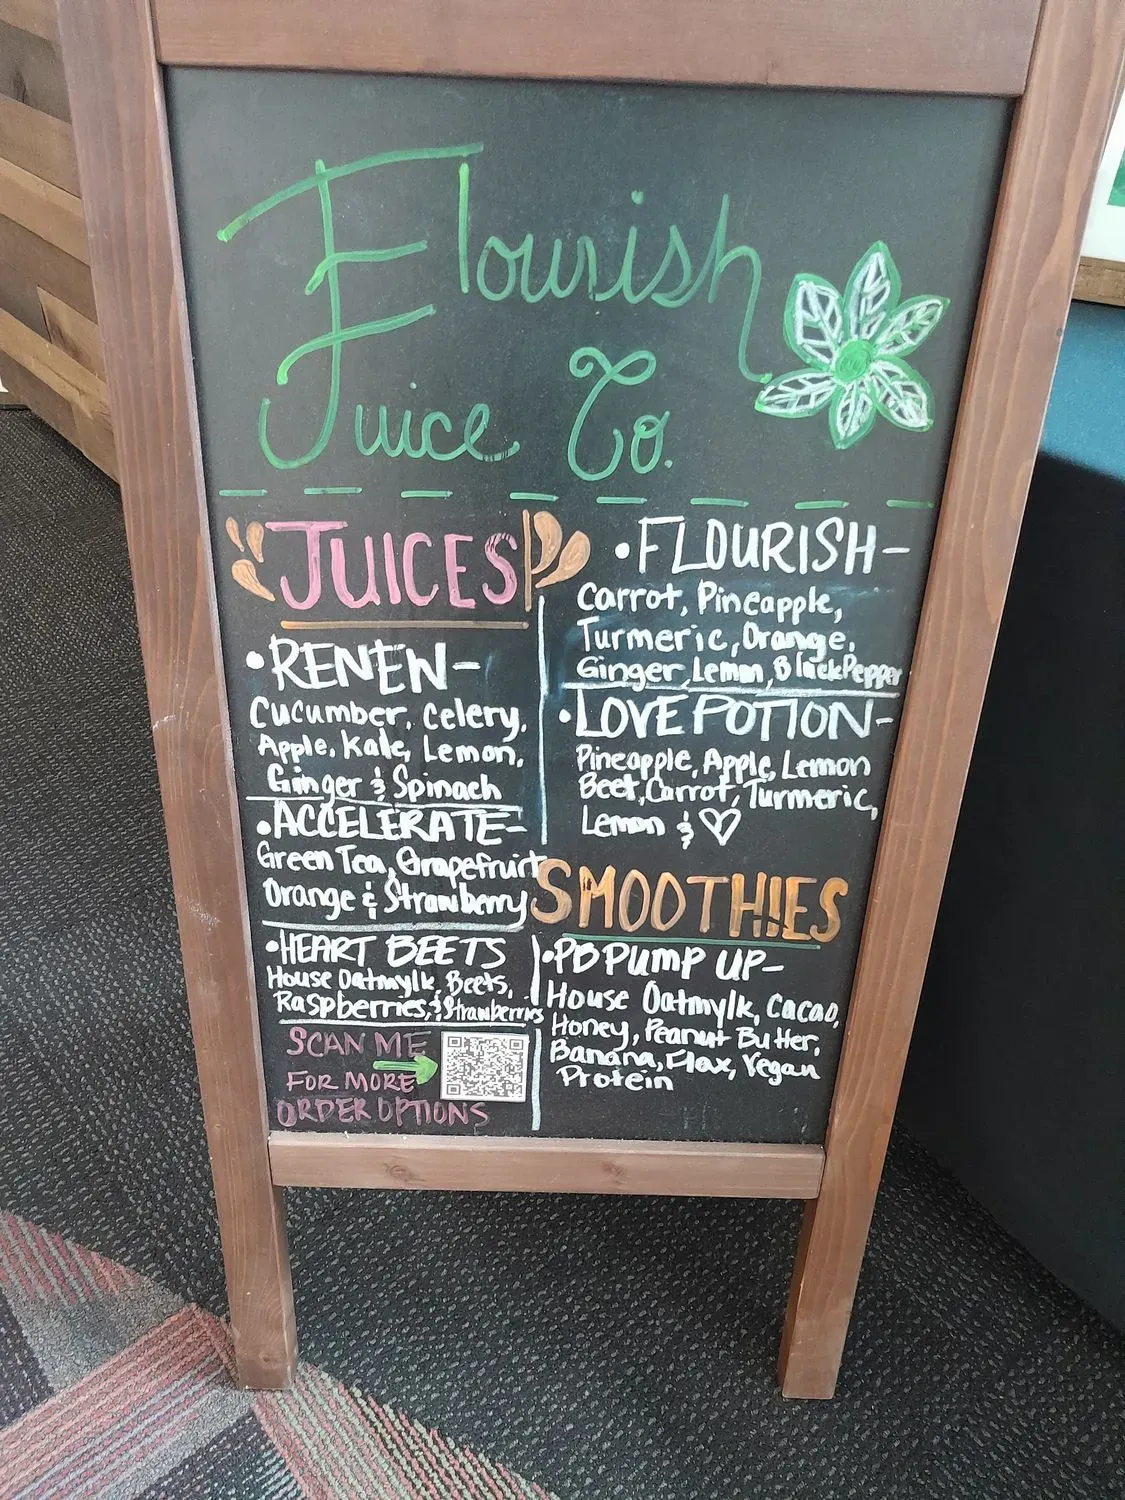 Flourish
Juice Co.
JUICES
•RENEW-
Cucumber, Celery,
Apple, Kale, Lemon,
Ginger & Spinach
•ACCELERATE-
Green Tea, Grapefruit
Orange & Strawberry
•HEART BEETS
House Oatmylk, Beets,
Raspberries, & Strawberries
SCAN ME
FOR MORE
ORDER OPTIONS
•FLOURISH-
Carrot, Pineapple,
Turmeric, Orange,
Ginger, Lemon, Black Pepper
•LOVE POTION-
Pineapple, Apple, Lemon
Beet, Carrot, Turmeric,
Lemon & ♡
SMOOTHIES
•PB PUMP UP-
House Oatmylk, Cacao,
Honey, Peanut Butter,
Banana, Flax, Vegan
Protein